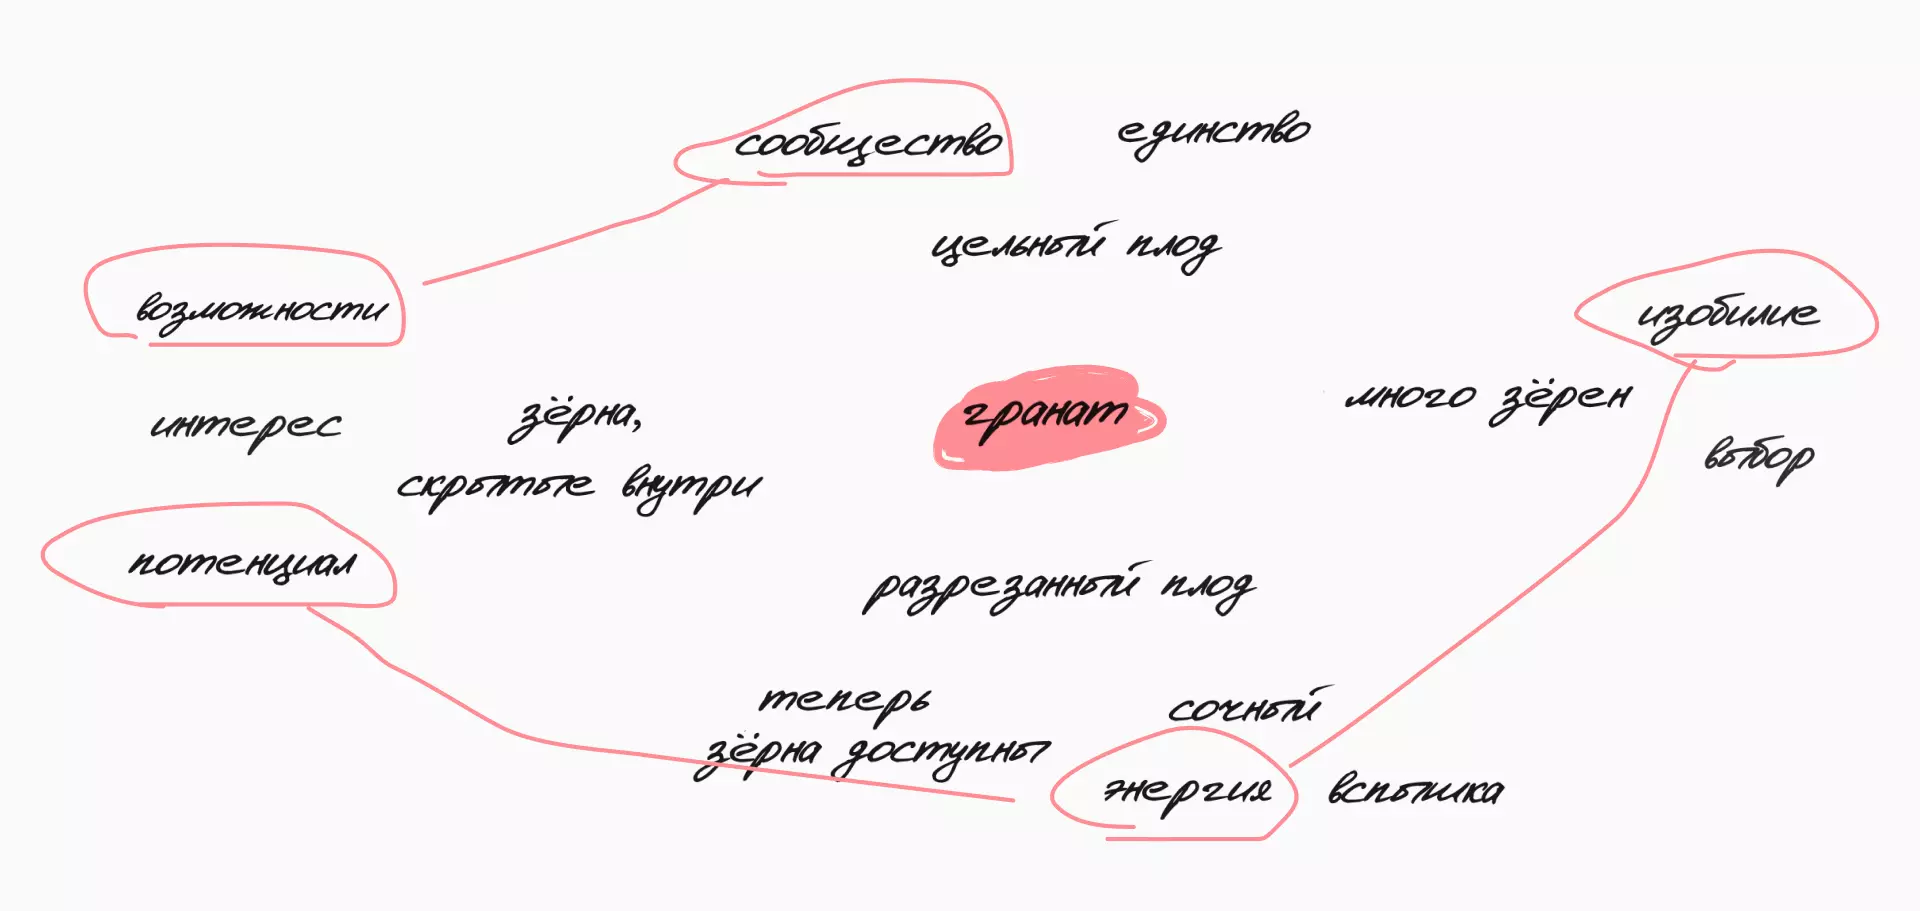 сообщество
единство
цельный плод
возможности
изобилие
много зёрен
интерес
зёрна,
гранат
выбор
скрытые внутри
потенциал
разрезанный плод
теперь
зёрна доступны
сочный
энергия
вспышка